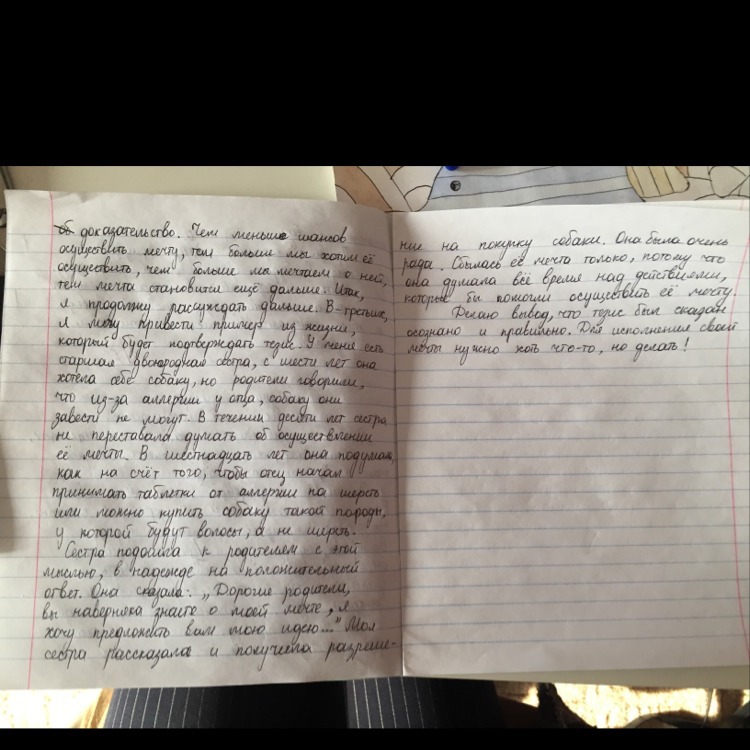 доказательство. Чем меньше шансов
осуществить мечту, тем больше мы хотим её
осуществить, чем больше мы мечтаем о ней,
тем мечта становится ещё дальше. Итак,
я продолжу рассуждать дальше. В-третьих,
я могу привести пример из жизни,
который будет подтверждать тезис. У меня есть
старшая двоюродная сестра, с шести лет она
хотела себе собаку, но родители говорили,
что из-за аллергии у отца, собаку они
завести не могут. В течении десяти лет сестра
не переставала думать об осуществлении
её мечты. В шестнадцать лет она подумала,
как на счёт того, чтобы отец начал
принимать таблетки от аллергии на шерсть
или можно купить собаку такой породы,
у которой будут волосы, а не шерсть.
Сестра подошла к родителем с этой
мыслью, в надежде на положительный
ответ. Она сказала: „Дорогие родители,
вы наверняка знаете о моей мечте, я
хочу предложить вам мою идею..." Моя
сестра рассказала и получила разреше-
ние на покупку собаки. Она была очень
рада. Сбылась её мечта только, потому что
она думала всё время над действиями,
которые бы помогли осуществить её мечту.
Делаю вывод, что тезис был сказан
осознано и правильно. Для исполнения своей
мечты нужно хоть что-то, но делать!